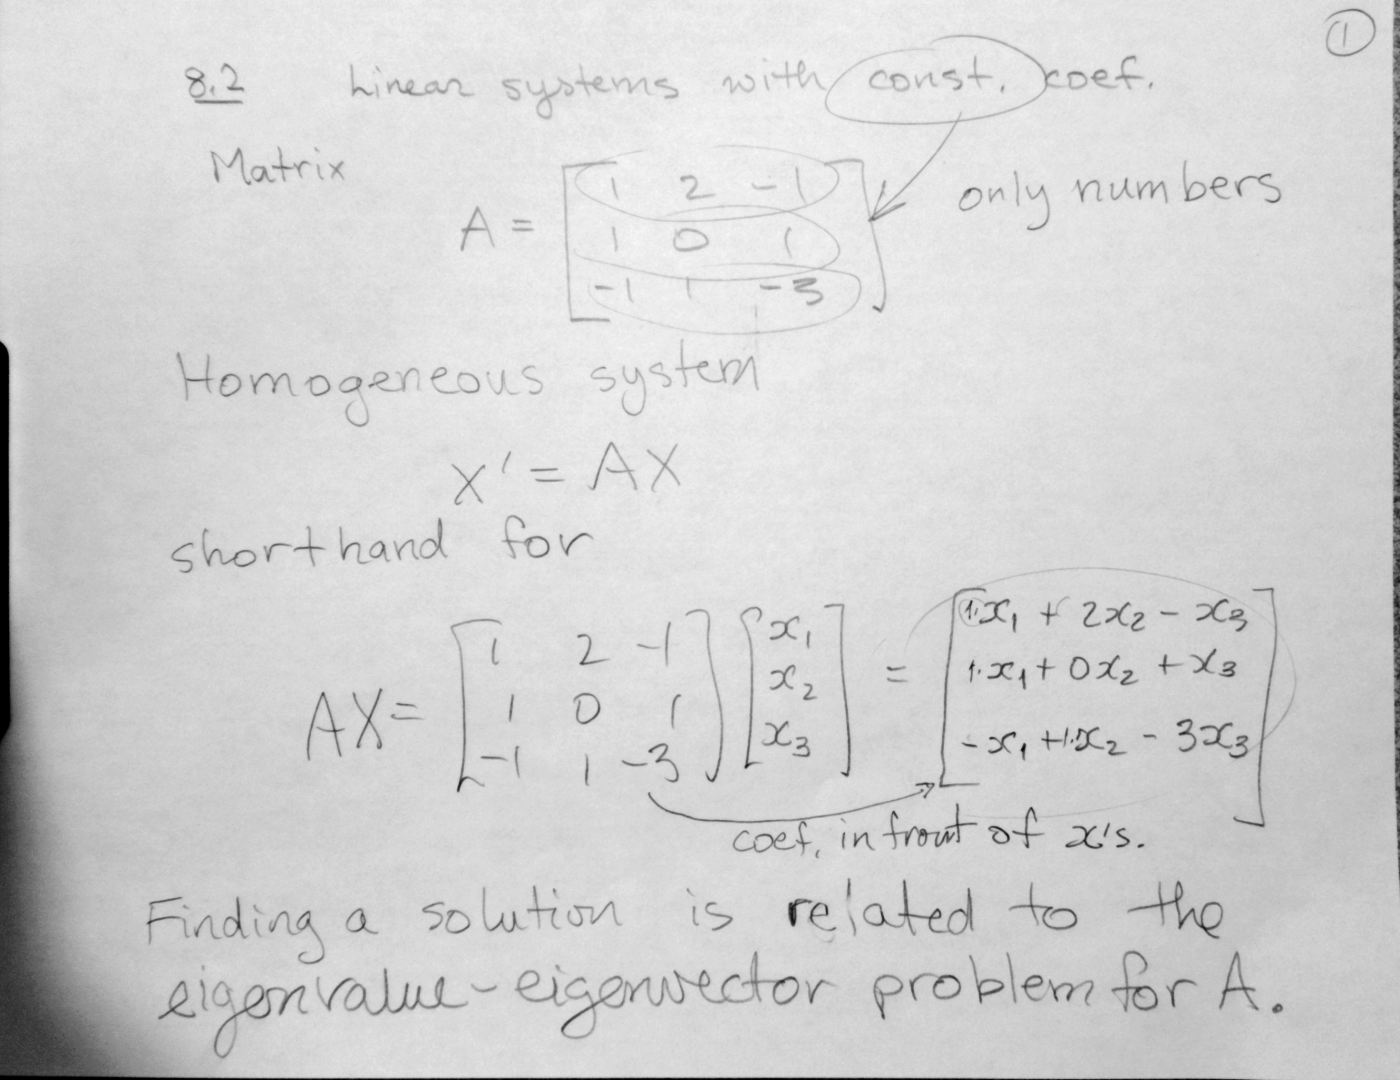 ①
8.2 Linear systems with const. coef.
Matrix
A = [ 1 2 -1
1 0 1
-1 1 -3 ]
only numbers
Homogeneous system
X' = AX
shorthand for
AX = [ 1 2 -1 ] [ x₁ ] = [ 1·x₁ + 2x₂ - x₃ ]
[ 1 0 1 ] [ x₂ ] [ 1·x₁ + 0x₂ + x₃ ]
[ -1 1 -3 ] [ x₃ ] [ -x₁ + 1·x₂ - 3x₃ ]
coef. in front of x's.
Finding a solution is related to the
eigenvalue-eigenvector problem for A.